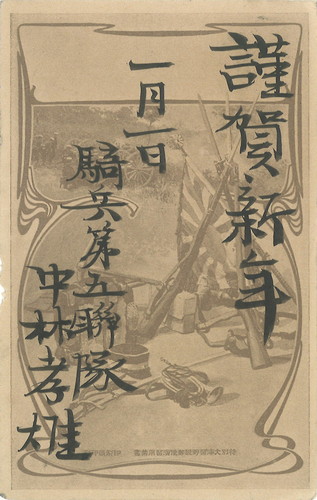 謹賀新年
一月一日
騎兵第五聯隊
中林孝雄